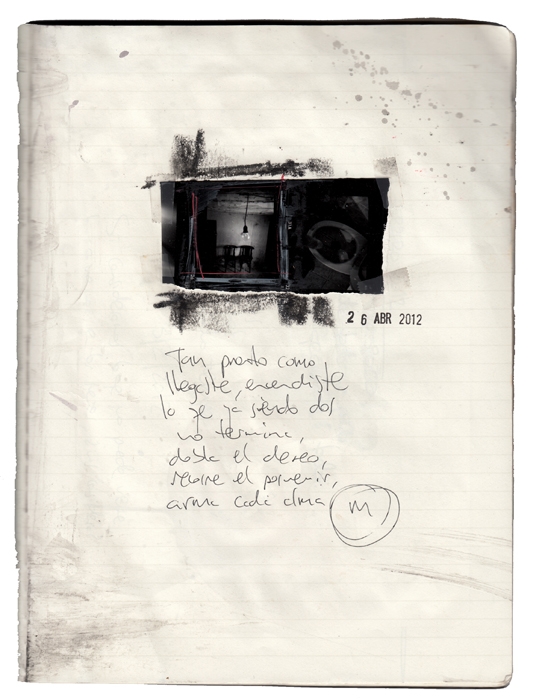 2 6 ABR 2012
Tan pronto como
llegaste, encendiste
lo ya siendo dos
no termina,
el deseo,
el porvenir,
arma cada alma
M